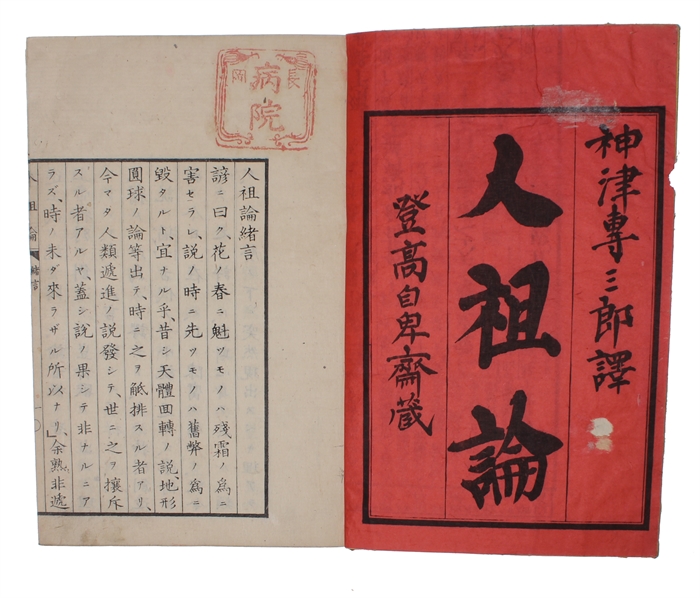 神津專三郎譯
人祖論
登高自卑齋藏
長
病院
人祖論緒言
諺ニ曰ク、花ノ春ニ魁ツモノハ殘霜ノ爲ニ
害セラレ、説ノ時ニ先ツモノハ舊弊ノ爲ニ
毀タルト、宜ナル乎、昔シ天體回轉ノ説、地形
圓球ノ論等出テ、時ニ之ヲ觝排スル者アリ、
今マタ人類遞進ノ説發シテ、世ニ之ヲ攘斥
スル者アルヤ、蓋シ説ノ果シテ非ナルニア
ラズ、時ノ未ダ來ラザル所以ナリ、」余熟非遞
人祖論
緒言